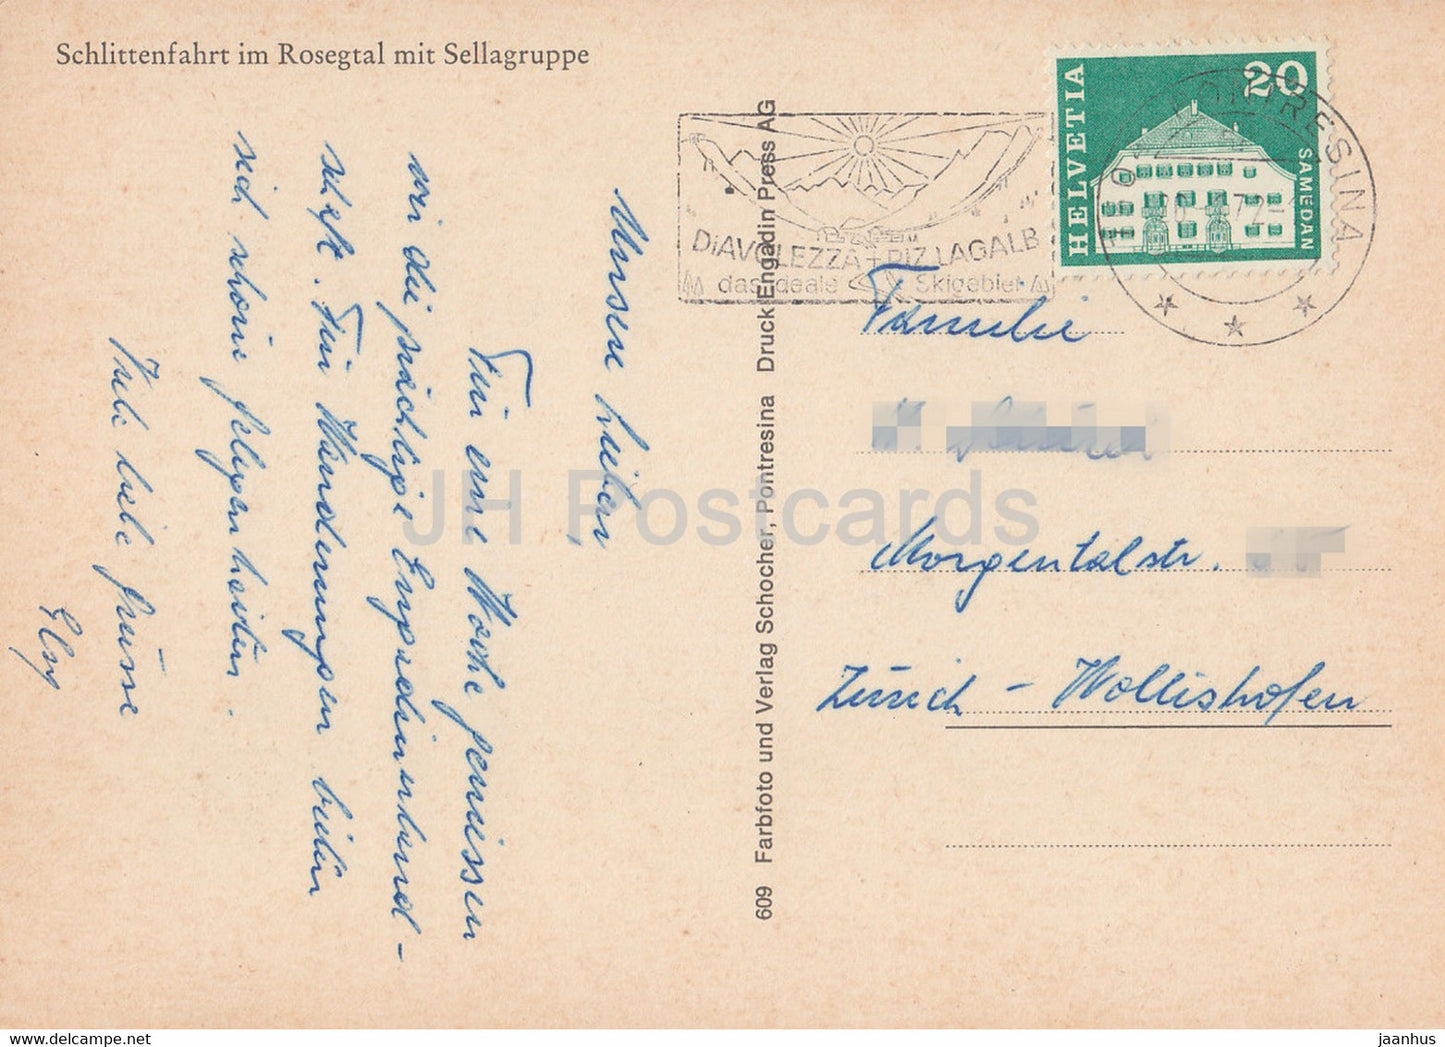 Schlittenfahrt im Rosegtal mit Sellagruppe
HELVETIA
20
SAMEDAN
PONTRESINA
72
DiAVOLEZZA + PIZ LAGALB
das ideale Skigebiet
609 Farbfoto und Verlag Schocher, Pontresina Druck Engadin Press AG
Unsere Lieben,
Für eine Woche geniessen
wir die prächtige Engadinland-
schaft. Für Wanderungen bieten
sich schöne Gelegenheiten.
Viele liebe Grüsse
Elsy
Familie
Morgentalstr.
Zürich - Wollishofen
JH Postcards
www.delcampe.net
jaanhus